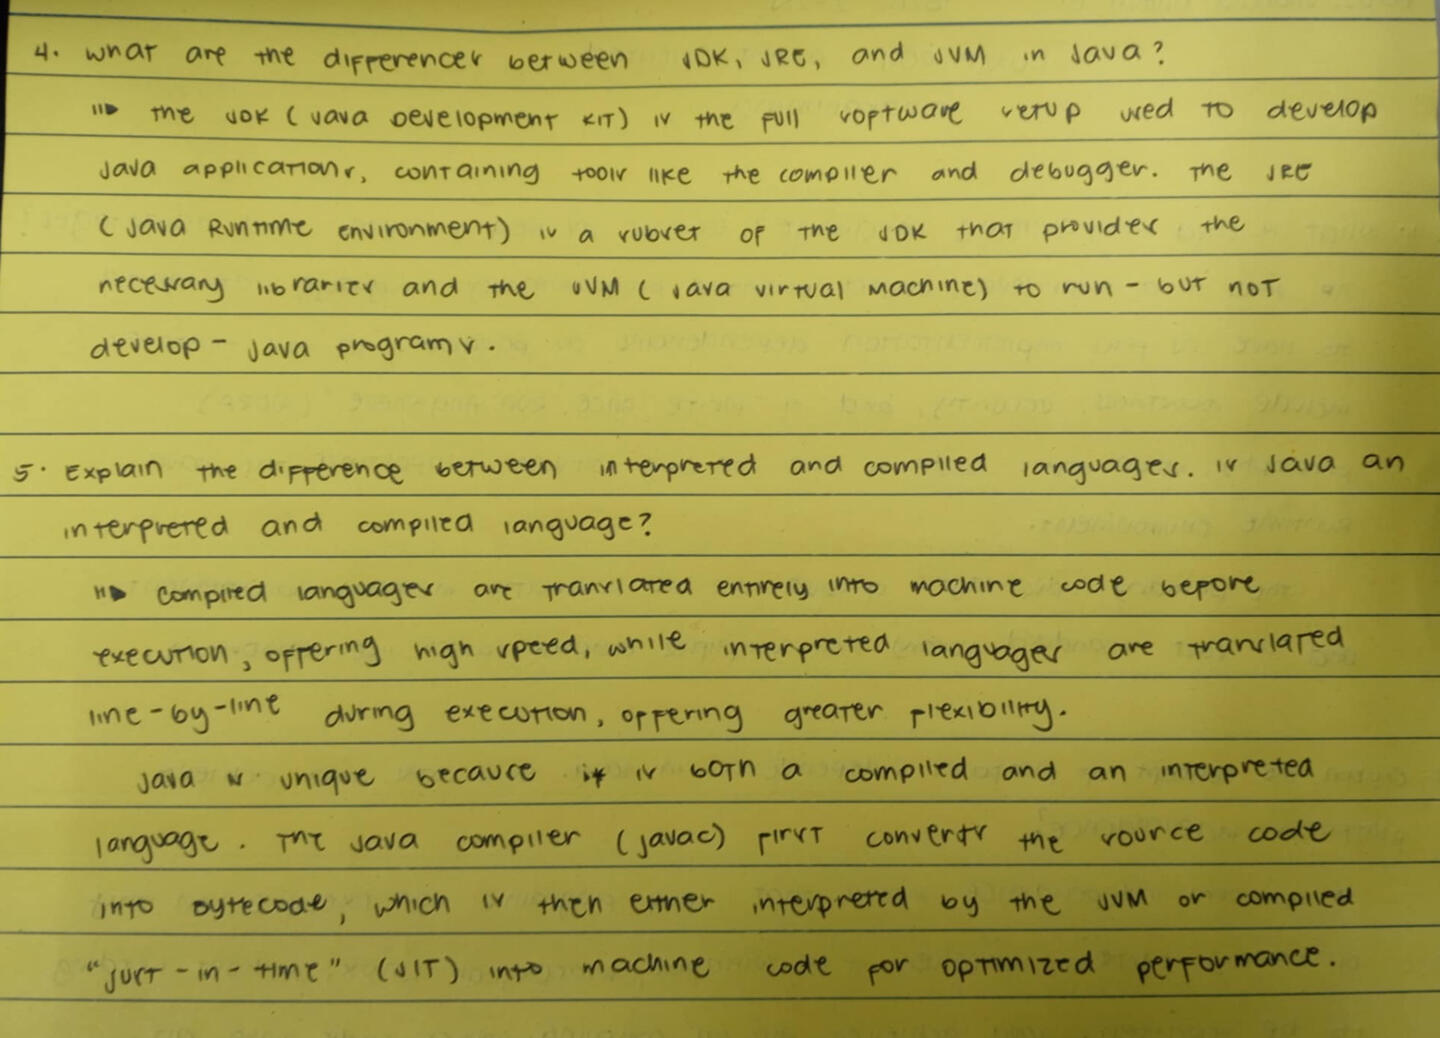 4. What are the differences between JDK, JRE, and JVM in Java?
"▶ The JDK (Java Development Kit) is the full software setup used to develop
Java applications, containing tools like the compiler and debugger. The JRE
(Java Runtime Environment) is a subset of the JDK that provides the
necessary libraries and the JVM (Java Virtual Machine) to run - but not
develop - Java programs.
5. Explain the difference between interpreted and compiled languages. Is Java an
interpreted and compiled language?
"▶ Compiled languages are translated entirely into machine code before
execution, offering high speed, while interpreted languages are translated
line-by-line during execution, offering greater flexibility.
Java is unique because it is both a compiled and an interpreted
language. The Java compiler (javac) first converts the source code
into bytecode, which is then either interpreted by the JVM or compiled
"just-in-time" (JIT) into machine code for optimized performance.